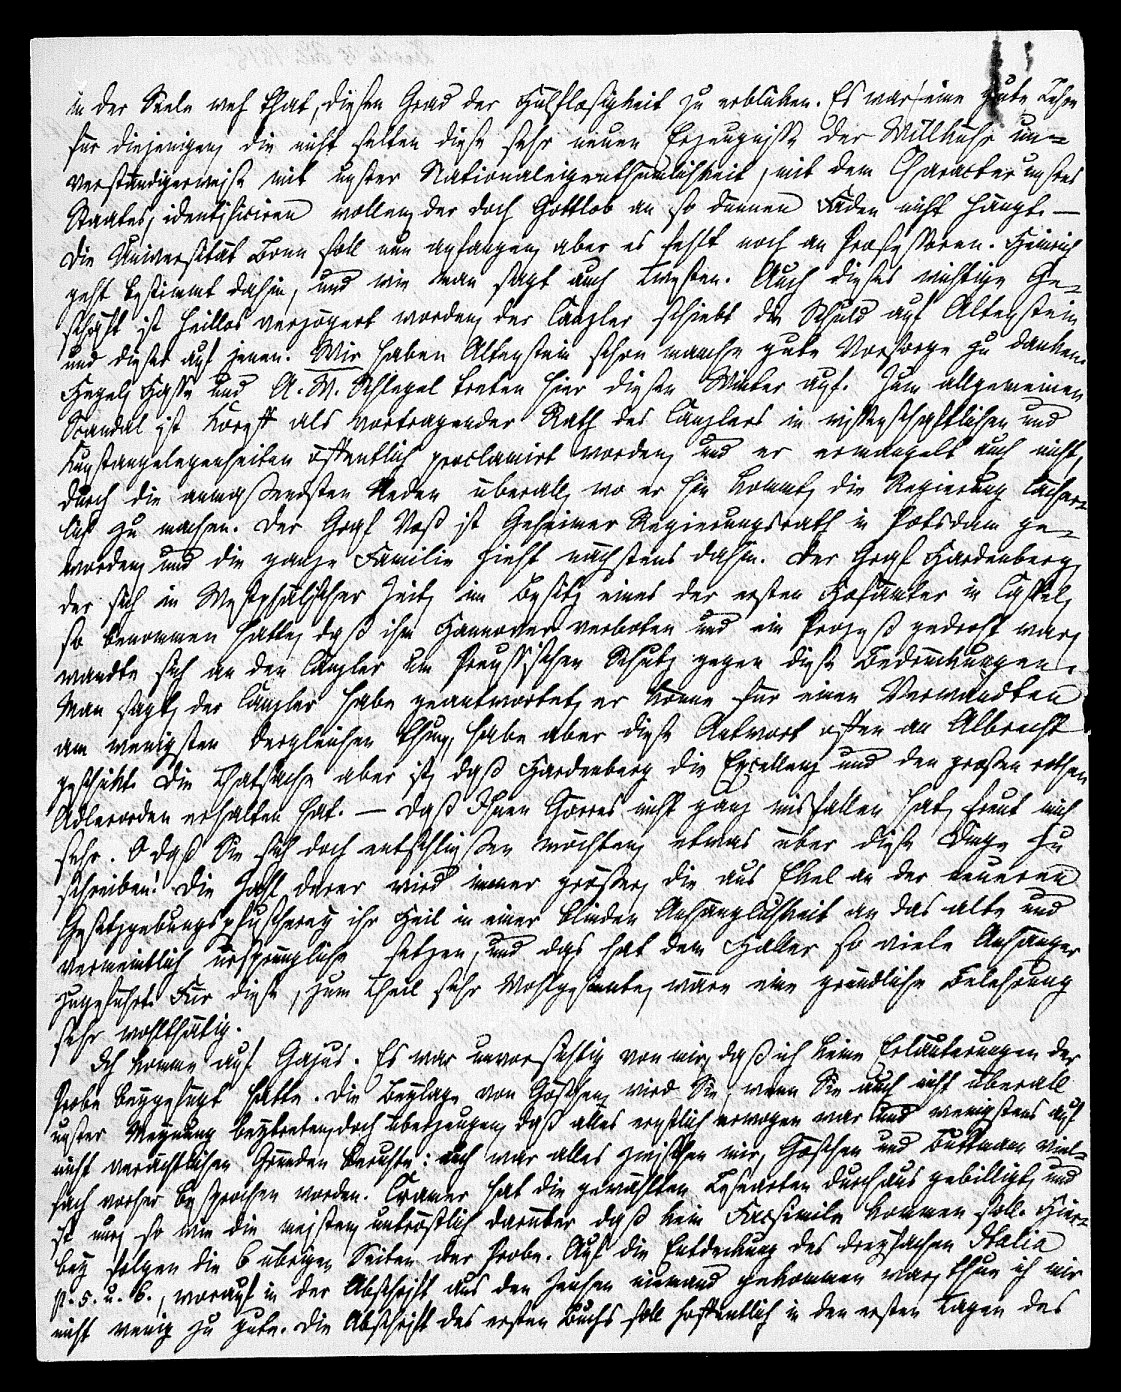 in der Seele weh that, diesen Grad der Hülflosigkeit zu erblicken. Es war eine gute Lehre
für diejenigen, die nicht selten diese sehr neuen Erzeugnisse der Willkühr un-
verständigerweise mit unsrer Nationaleigenthümlichkeit, mit dem Character unsres
Staates, identificiren wollen, der doch Gottlob an so dünnen Fäden nicht hängt. —
Die Universität Bonn soll nun anfangen, aber es fehlt noch an Professoren. Heinrich
geht bestimmt dahin, und wie man sagt auch Twesten. Auch dieses wichtige Ge-
schäft ist heillos verzögert worden, der Canzler schiebt die Schuld auf Altenstein
und dieser auf jenen. Wir haben Altenstein schon manche gute Vorsorge zu danken.
Hegel, Hasse und A. W. Schlegel treten hier diesen Winter auf. Zum allgemeinen
Scandal ist Koreff als vortragender Rath des Canzlers in wissenschaftlichen und
Kunstangelegenheiten öffentlich proclamirt worden, und er ermangelt auch nicht,
durch die anmaßendsten Reden überall, wo er hin kommt, die Regierung lächer-
lich zu machen. Der Graf Voß ist Geheimer Regierungsrath in Potsdam ge-
worden, und die ganze Familie zieht nächstens dahin. Der Graf Hardenberg,
der sich in Westphälischer Zeit, im Besitz eines der ersten Hofämter in Cassel,
so benommen hatte, daß ihm Hannover verboten und ein Prozeß gedroht war,
wandte sich an den Canzler um Preußischen Schutz gegen diese Bedrückungen.
Man sagt, der Canzler habe geantwortet, er könne für einen Verwandten
am wenigsten dergleichen thun, habe aber diese Antwort offen an Albrecht
geschickt. Die Thatsache aber ist, daß Hardenberg die Excellenz und den großen rothen
Adlerorden erhalten hat. — Daß Ihnen Görres nicht ganz misfallen hat, freut mich
sehr. O daß Sie sich doch entschließen möchten, etwas über diese Dinge zu
schreiben! Die Zahl derer wird immer größer, die aus Ekel an der neueren
Gesetzgebungspfuscherey ihr Heil in einer blinden Anhänglichkeit an das alte und
vermeintlich ursprüngliche setzen, und das hat dem Haller so viele Anhänger
zugeführt. Für diese, zum Theil sehr Wohlgesinnte, wäre eine gründliche Belehrung
sehr wohlthätig.
Ich komme auf Gajus. Es war unvorsichtig von mir, daß ich keine Erläuterungen der
Probe beygefügt hatte. Die Beylage von Göschen, wird Sie, wenn Sie auch nicht überall
unsrer Meynung beytreten, doch überzeugen, daß alles ernstlich erwogen war und wenigstens auf
nicht verächtlichen Gründen beruhte: auch war alles zwischen mir, Göschen und Buttmann viel-
fach vorher besprochen worden. Cramer hat die gewählten Lesearten durchaus gebilligt, und
ist nur, so wie die meisten, untröstlich darüber daß kein Facsimile kommen soll. Hier-
bey folgen die 6 übrigen Seiten der Probe. Auf die Entdeckung des dreyfachen Italia
S. 5. u. 6., worauf in der Abschrift aus den Zeichen niemand gekommen war, thue ich mir
nicht wenig zu gute. Die Abschrift des ersten Buchs soll hoffentlich in den ersten Tagen des